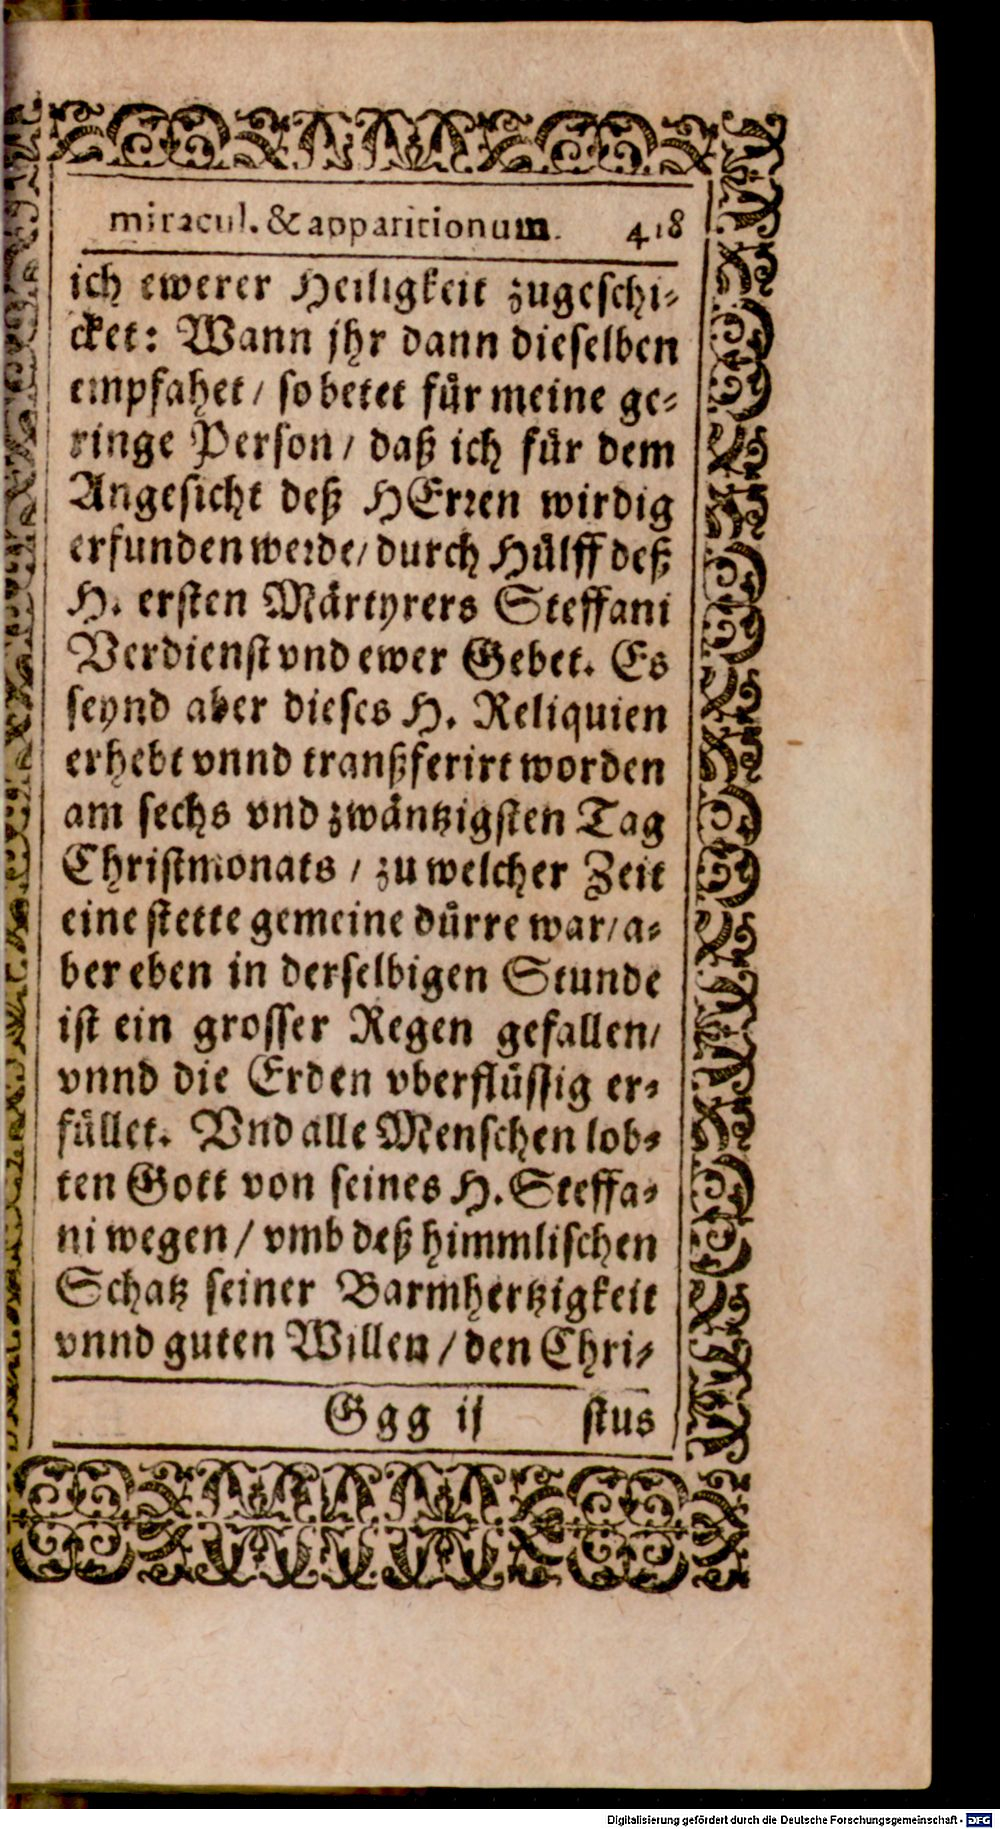 miracul. & apparitionum. 418
ich ewerer Heiligkeit zugeschi-
cket: Wann jhr dann dieselben
empfahet / so betet fuͤr meine ge-
ringe Person / daß ich fuͤr dem
Angesicht deß HErꝛen wirdig
erfunden weꝛde / durch Huͤlff deß
H. ersten Maͤrtyrers Steffani
Verdienst vnd ewer Gebet. Es
seynd aber dieses H. Reliquien
erhebt vnnd tranßferirt worden
am sechs vnd zwaͤntzigsten Tag
Christmonats / zu welcher Zeit
eine stette gemeine duͤrre war / a-
ber eben in derselbigen Stunde
ist ein grosser Regen gefallen /
vnnd die Erden vberfluͤssig er-
fuͤllet. Vnd alle Menschen lob-
ten Gott von seines H. Steffa-
ni wegen / vmb deß himmlischen
Schatz seiner Barmhertzigkeit
vnnd guten Willen / den Chri-
Ggg ij stus
Digitalisierung gefördert durch die Deutsche Forschungsgemeinschaft - DFG